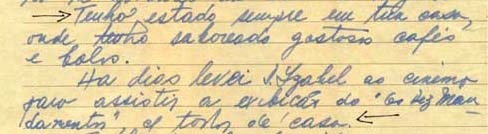 Tenho estado sempre em tua casa,
onde tenho saboreado gostoso cafés
e bolos.
Ha dias levei D. Yzabel ao cinema
para assistir a exibição do "Os Dez Man
damentos" e todos de casa.